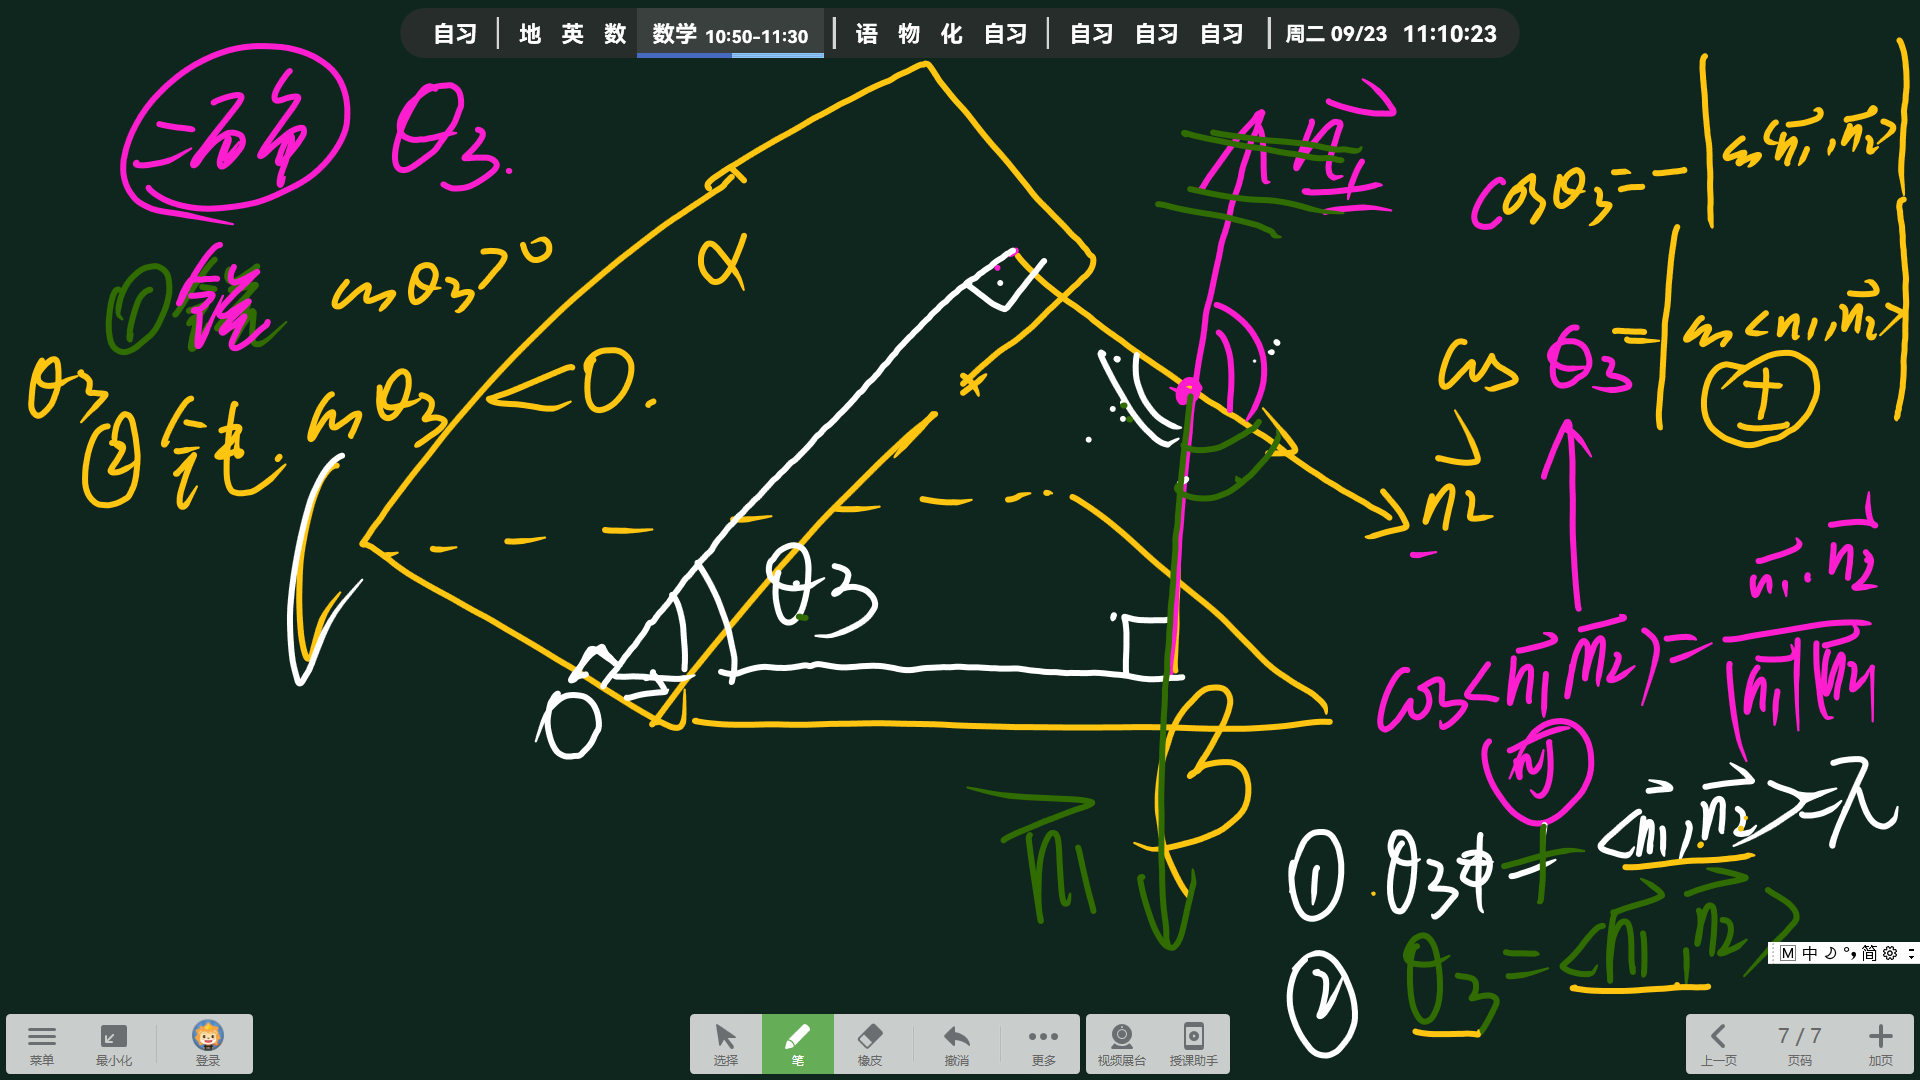 自习 | 地 英 数 数学 10:50-11:30 | 语 物 化 自习 | 自习 自习 自习 | 周二 09/23 11:10:23
二面角 θ3.
①锐 cosθ3>0
θ3
②钝. cosθ3<0.
α
n1
cosθ3=-|cos<n1,n2>|
cosθ3=|cos<n1,n2>|
±
n2
θ3
O
β
n1
cos<n1,n2>=n1·n2/|n1||n2|
① θ3+<n1,n2>=π
② θ3=<n1,n2>
M 中 简
菜单 最小化 登录
选择 笔 橡皮 撤消 更多 视频展台 授课助手
上一页 7 / 7 页码 加页